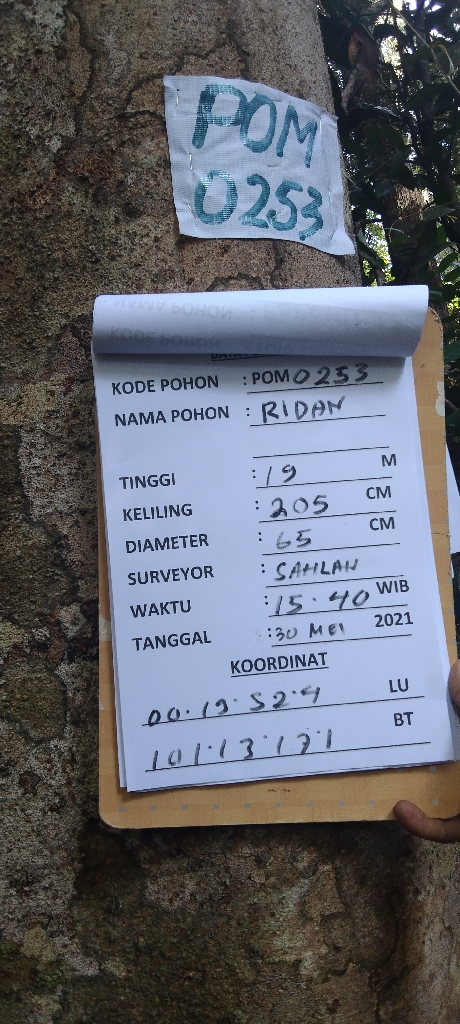 POM
0253
NAMA POHON
KODE POHON
KODE POHON : POM 0253
NAMA POHON : RIDAN
TINGGI : 19 M
KELILING : 205 CM
DIAMETER : 65 CM
SURVEYOR : SAHLAN
WAKTU : 15.40 WIB
TANGGAL : 30 MEI 2021
KOORDINAT
00.19.52.4 LU
101.13.17.1 BT